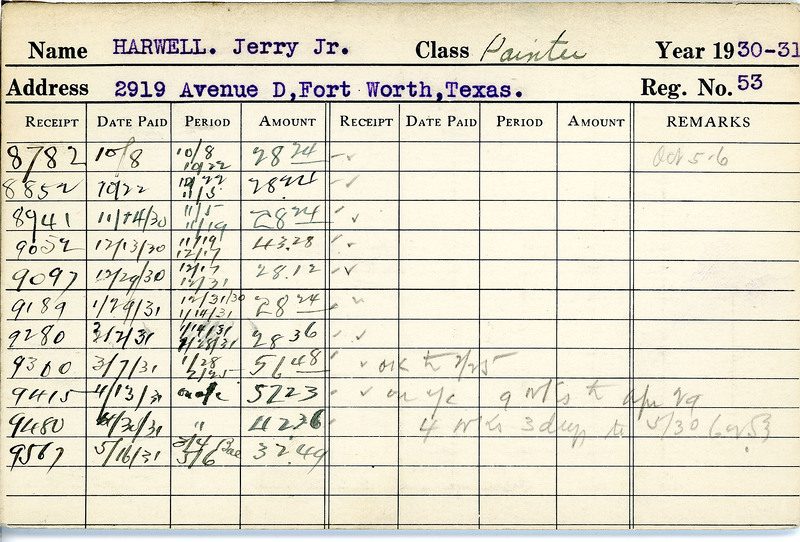 Name HARWELL. Jerry Jr. Class Painter Year 1930-31
Address 2919 Avenue D, Fort Worth, Texas. Reg. No. 53
RECEIPT DATE PAID PERIOD AMOUNT RECEIPT DATE PAID PERIOD AMOUNT REMARKS
8782 10/8 10/8 10/22 28 24 Oct 5-6
8852 10/22 10/22 11/5 28 24
8941 11/14/30 11/5 11/19 28 24
9052 12/13/30 11/19 12/17 43.28
9097 12/29/30 12/17 12/31 28.12
9189 1/29/31 12/31/30 1/14/31 28 24
9280 2/2/31 1/14/31 1/28/31 28 36
9300 3/7/31 1/28 2/25 56 48 OK to 2/25
9415 4/13/31 on a/c 57 23 on a/c 9 wks to Apr 29
9480 4/30/31 " 42 36 4 wks 3 days to 5/30
9567 5/16/31 3/4 5/6 Bal 32.49